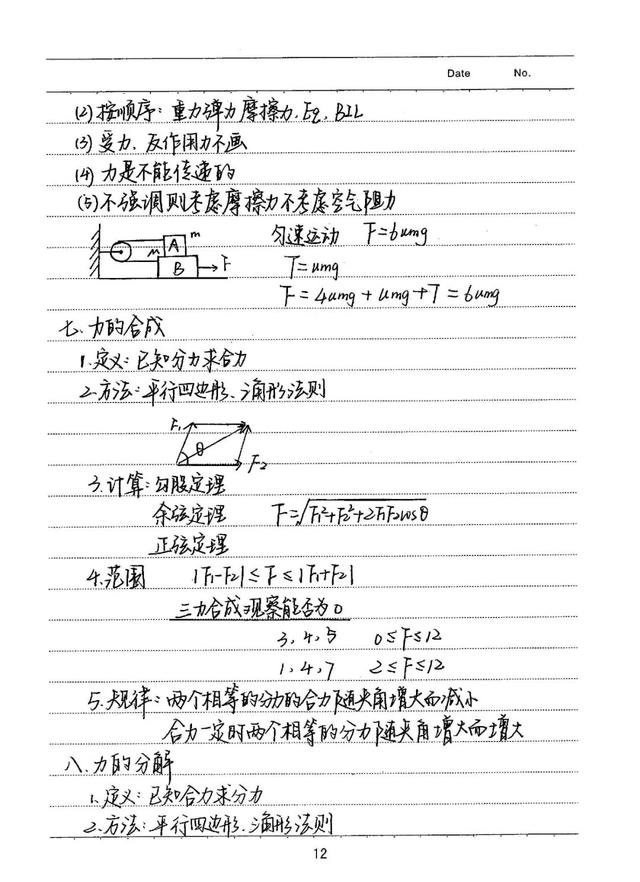 Date No.
(2) 按顺序: 重力弹力摩擦力. Eq. BIL
(3) 受力. 反作用力不画
(4) 力是不能传递的
(5) 不强调则考虑摩擦力不考虑空气阻力
m
匀速运动 F=6umg
A
M
B F
T=umg
F=4umg+umg+T=6umg
七. 力的合成
1. 定义: 已知分力求合力
2. 方法: 平行四边形. 三角形法则
F₁
θ
F₂
3. 计算: 勾股定理
余弦定理 F=√F₁²+F₂²+2F₁F₂cosθ
正弦定理
4. 范围 |F₁-F₂|≤F≤|F₁+F₂|
三力合成观察能否为0
3, 4, 5 0≤F≤12
1, 4, 7 2≤F≤12
5. 规律: 两个相等的分力的合力随夹角增大而减小
合力一定时两个相等的分力随夹角增大而增大
八. 力的分解
1. 定义: 已知合力求分力
2. 方法: 平行四边形. 三角形法则
12